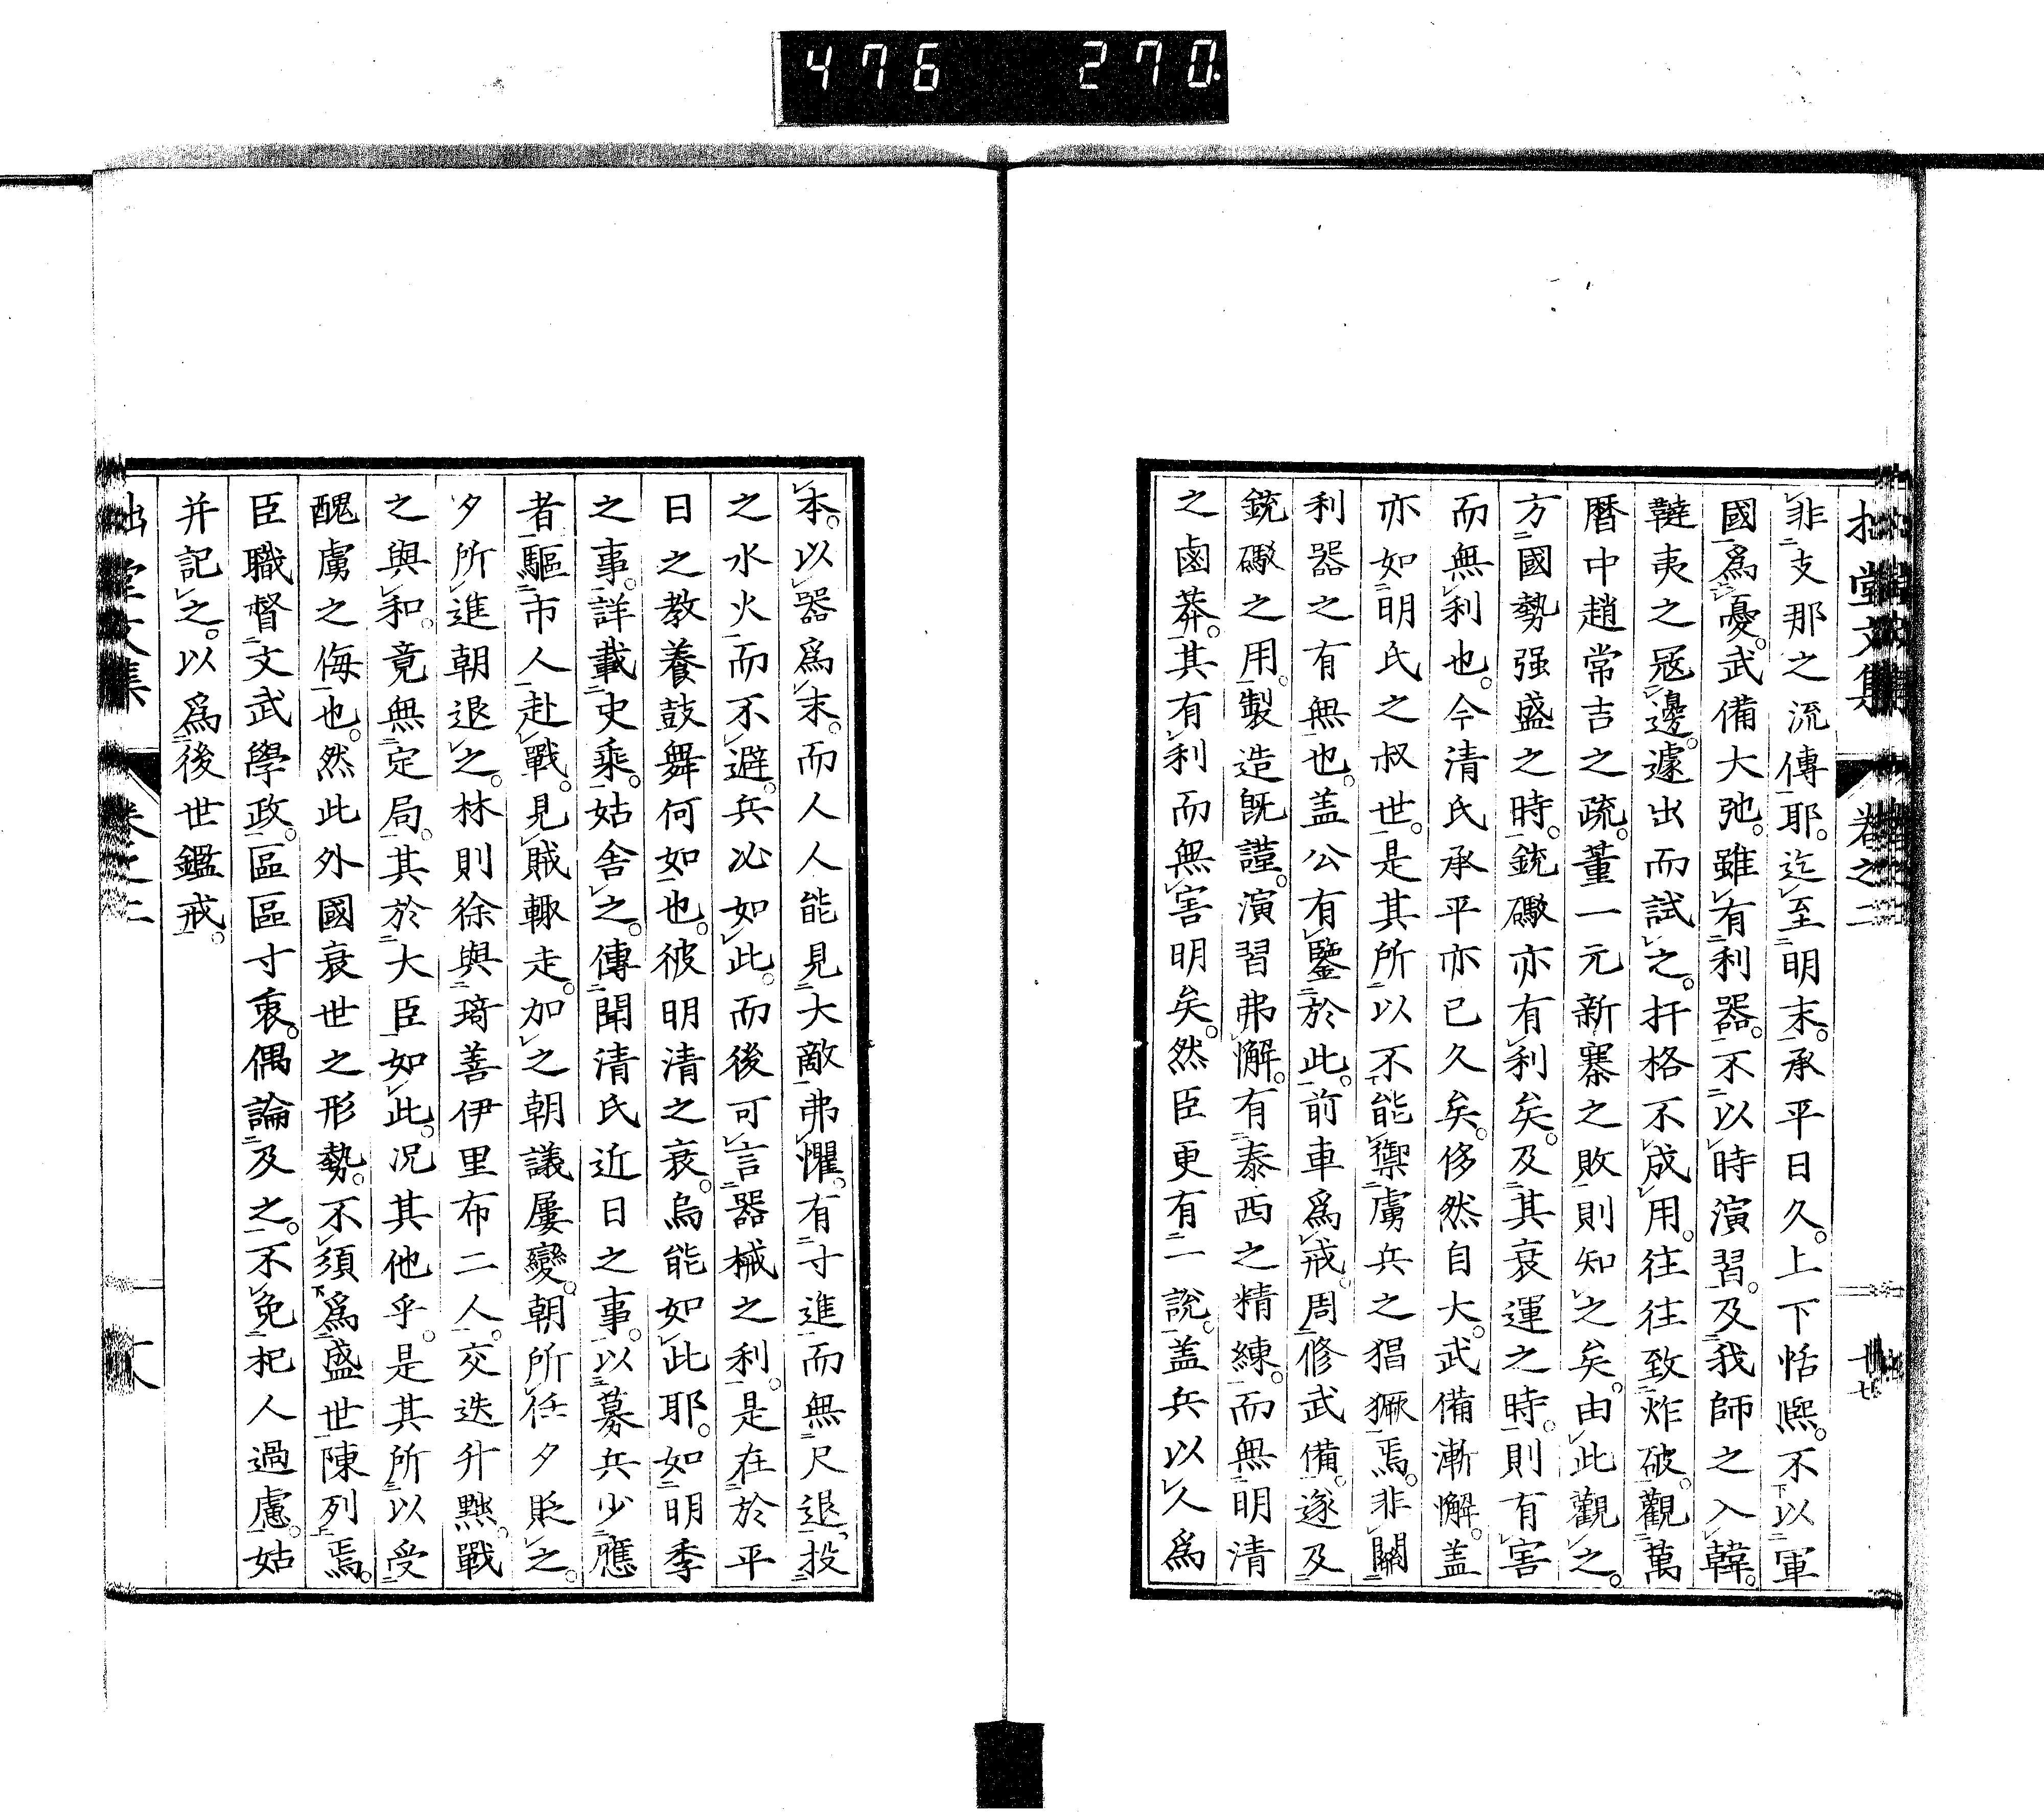 476 270
拙堂文集 卷之二 十七
非支那之流傳耶。迄至明末。承平日久。上下恬熈。不以軍
國爲憂。武備大弛。雖有利器。不以時演習。及我師之入韓。
韃夷之冦邊。遽出而試之。扞格不成用。往往致炸破。觀萬
曆中趙常吉之疏。董一元新寨之敗則知之矣。由此觀之。
方國勢强盛之時。銃礮亦有利矣。及其衰運之時。則有害
而無利也。今清氏承平亦已久矣。侈然自大。武備漸懈。盖
亦如明氏之叔世。是其所以不能禦虜兵之猖獗焉。非關
利器之有無也。盖公有鑒於此。前車爲戒。周修武備。遂及
銃礮之用。製造既謹。演習弗懈。有泰西之精練。而無明清
之鹵莽。其有利而無害明矣。然臣更有一說。盖兵以人爲
本。以器爲末。而人人能見大敵弗懼。有寸進而無尺退、投
之水火而不避。兵必如此。而後可言器械之利。是在於平
日之教養鼓舞何如也。彼明清之衰。烏能如此耶。如明季
之事。詳載史乘。姑舍之。傳聞清氏近日之事。以募兵少應
者。驅市人赴戰。見賊輙走。加之朝議屢變。朝所任夕貶之。
夕所進朝退之。林則徐與琦善伊里布二人。交迭升黜。戰
之與和。竟無定局。其於大臣如此。况其他乎。是其所以受
醜虜之侮也。然此外國衰世之形勢。不須爲盛世陳列焉。
臣職督文武學政。區區寸衷。偶論及之。不免杞人過慮。姑
并記之。以爲後世鑑戒。